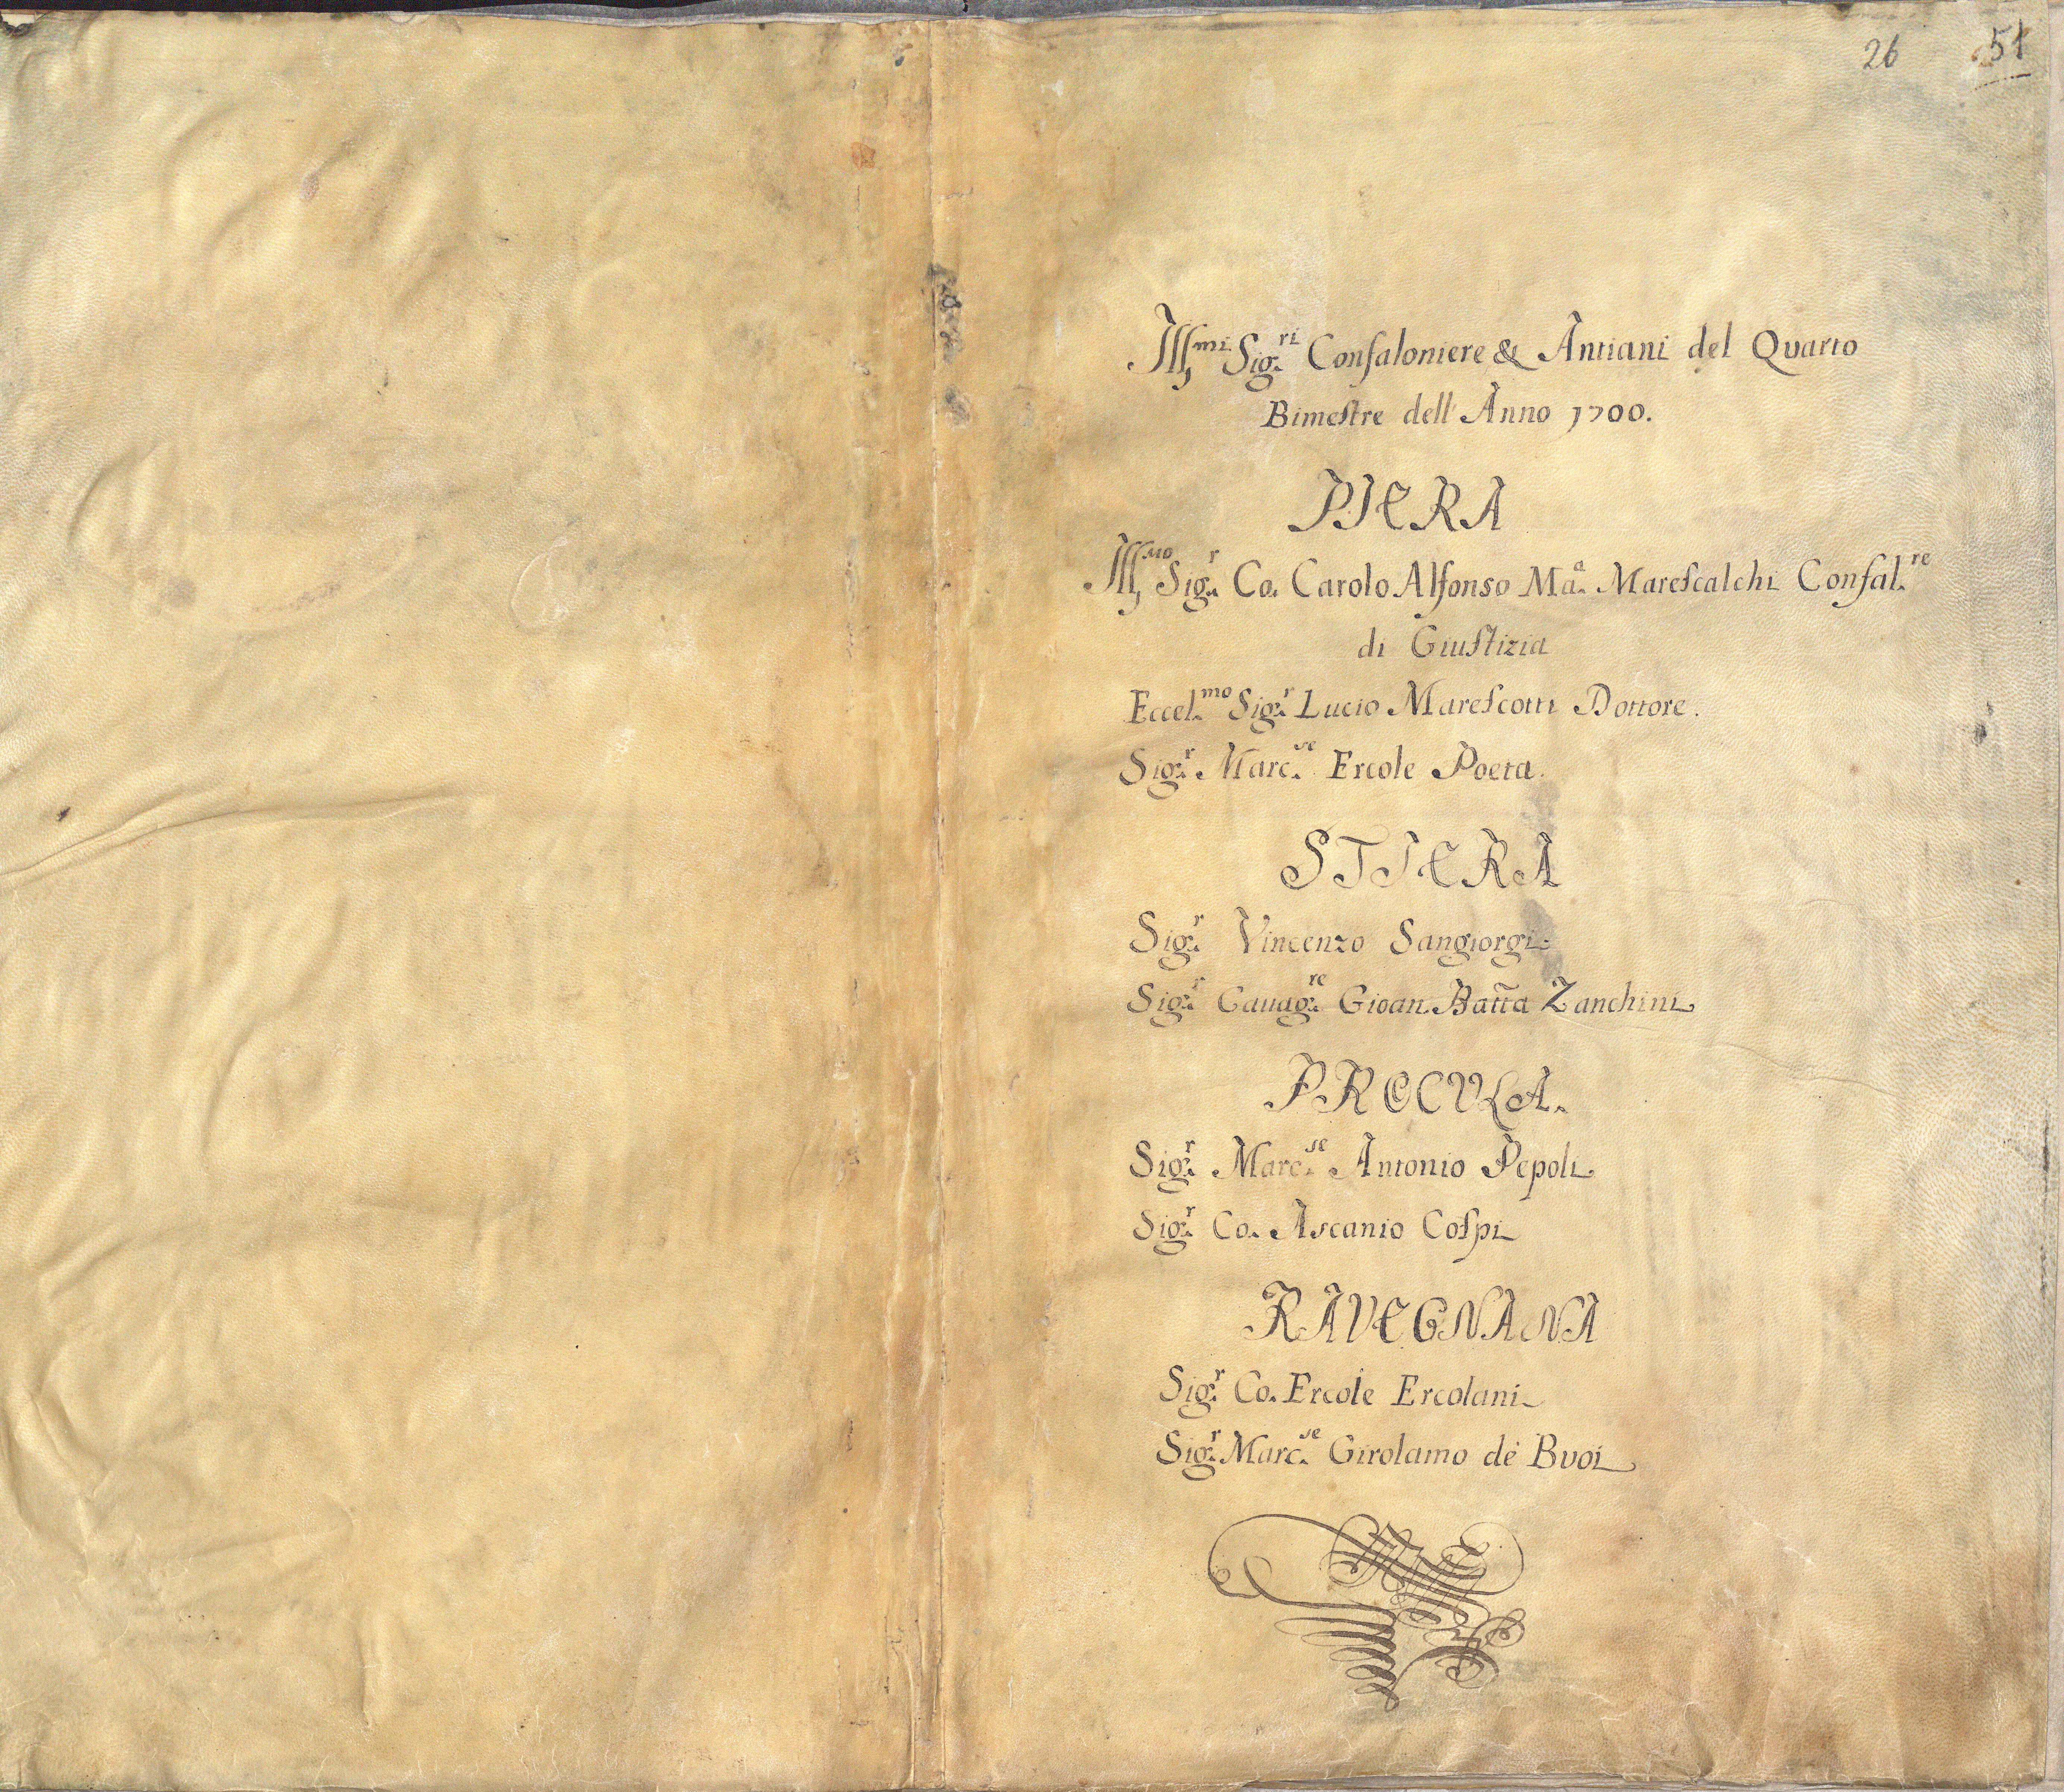 26 51
Ill.mi Sig.ri Confaloniere & Antiani del Quarto
Bimestre dell'Anno 1700.
PIERA
Ill.mo Sig.r Co. Carolo Alfonso Ma.a Marescalchi Confal.re
di Giustizia
Eccel.mo Sig.r Lucio Marescotti Dottore.
Sig.r Marc.se Ercole Poeta.
STIERA
Sig.r Vincenzo Sangiorgi
Sig.r Cauag.re Gioan Batta Zanchini
PROCULA.
Sig.r Marc.se Antonio Pepoli
Sig.r Co. Ascanio Cospi
RAVEGNANA
Sig.r Co. Ercole Ercolani
Sig.r Marc.se Girolamo de Buoi